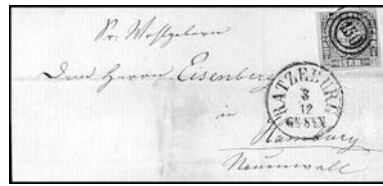 Sr. Wohlgeboren
Dem Herrn Eisenberg
in
Hamburg
Neuenwall
RATZEBURG
3
12
150